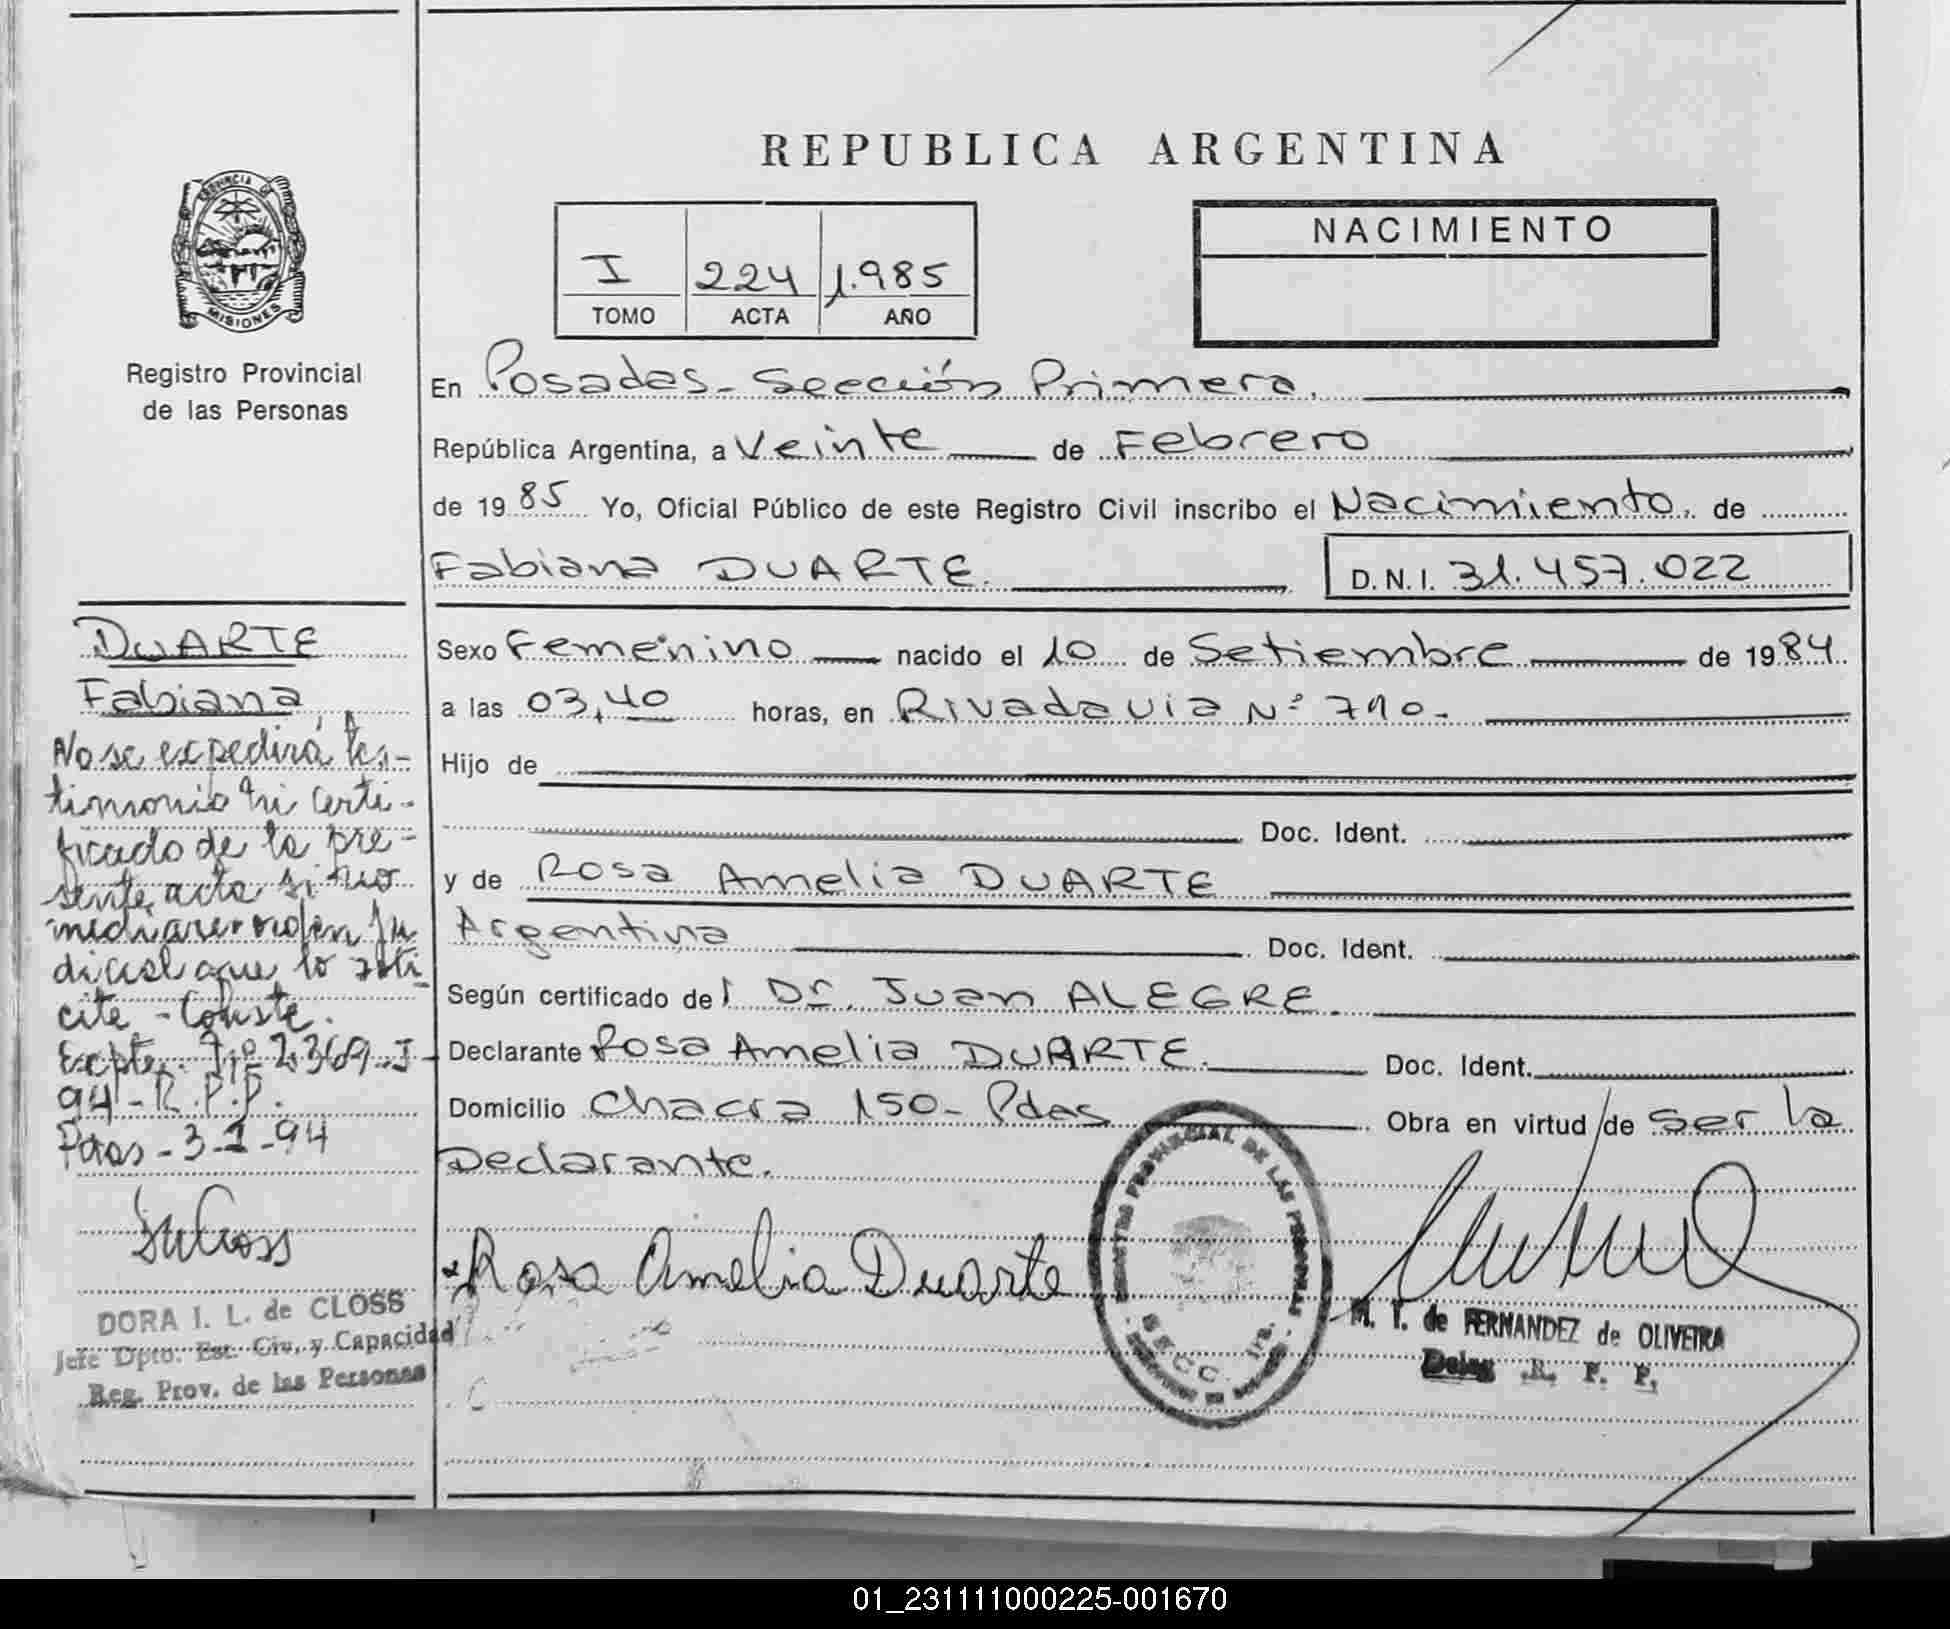 REPUBLICA ARGENTINA
PROVINCIA DE
MISIONES
Registro Provincial
de las Personas
I 224 1.985
TOMO ACTA AÑO
NACIMIENTO
En Posadas - Sección Primera.
República Argentina, a Veinte de Febrero
de 1985 Yo, Oficial Público de este Registro Civil inscribo el Nacimiento. de
Fabiana DUARTE. D.N.I. 31.457.022
Sexo Femenino nacido el 10 de Setiembre de 1984
a las 03,40 horas, en Rivadavia Nº 710.
Hijo de
Doc. Ident.
y de Rosa Amelia DUARTE
Argentina Doc. Ident.
Según certificado del Dr. Juan ALEGRE.
Declarante Rosa Amelia DUARTE. Doc. Ident.
Domicilio Chacra 150 - Pdas Obra en virtud de ser la
Declarante.
Rosa Amelia Duarte
PROVINCIAL DE LAS PERSONAS
SECC. 1ra.
M. T. de FERNANDEZ de OLIVEIRA
Deleg. R. P. P.
DUARTE
Fabiana
No se expedirá tes-
timonio ni certi-
ficado de la pre-
sente acta si no
mediare orden ju
dicial que lo soli
cite - Conste.
Expte. Nº 2.369-I-
94 - R.P.P.
Pdas - 3-1-94
DORA I. L. de CLOSS
Jefe Dpto. Est. Civ. y Capacidad
Reg. Prov. de las Personas
01_231111000225-001670